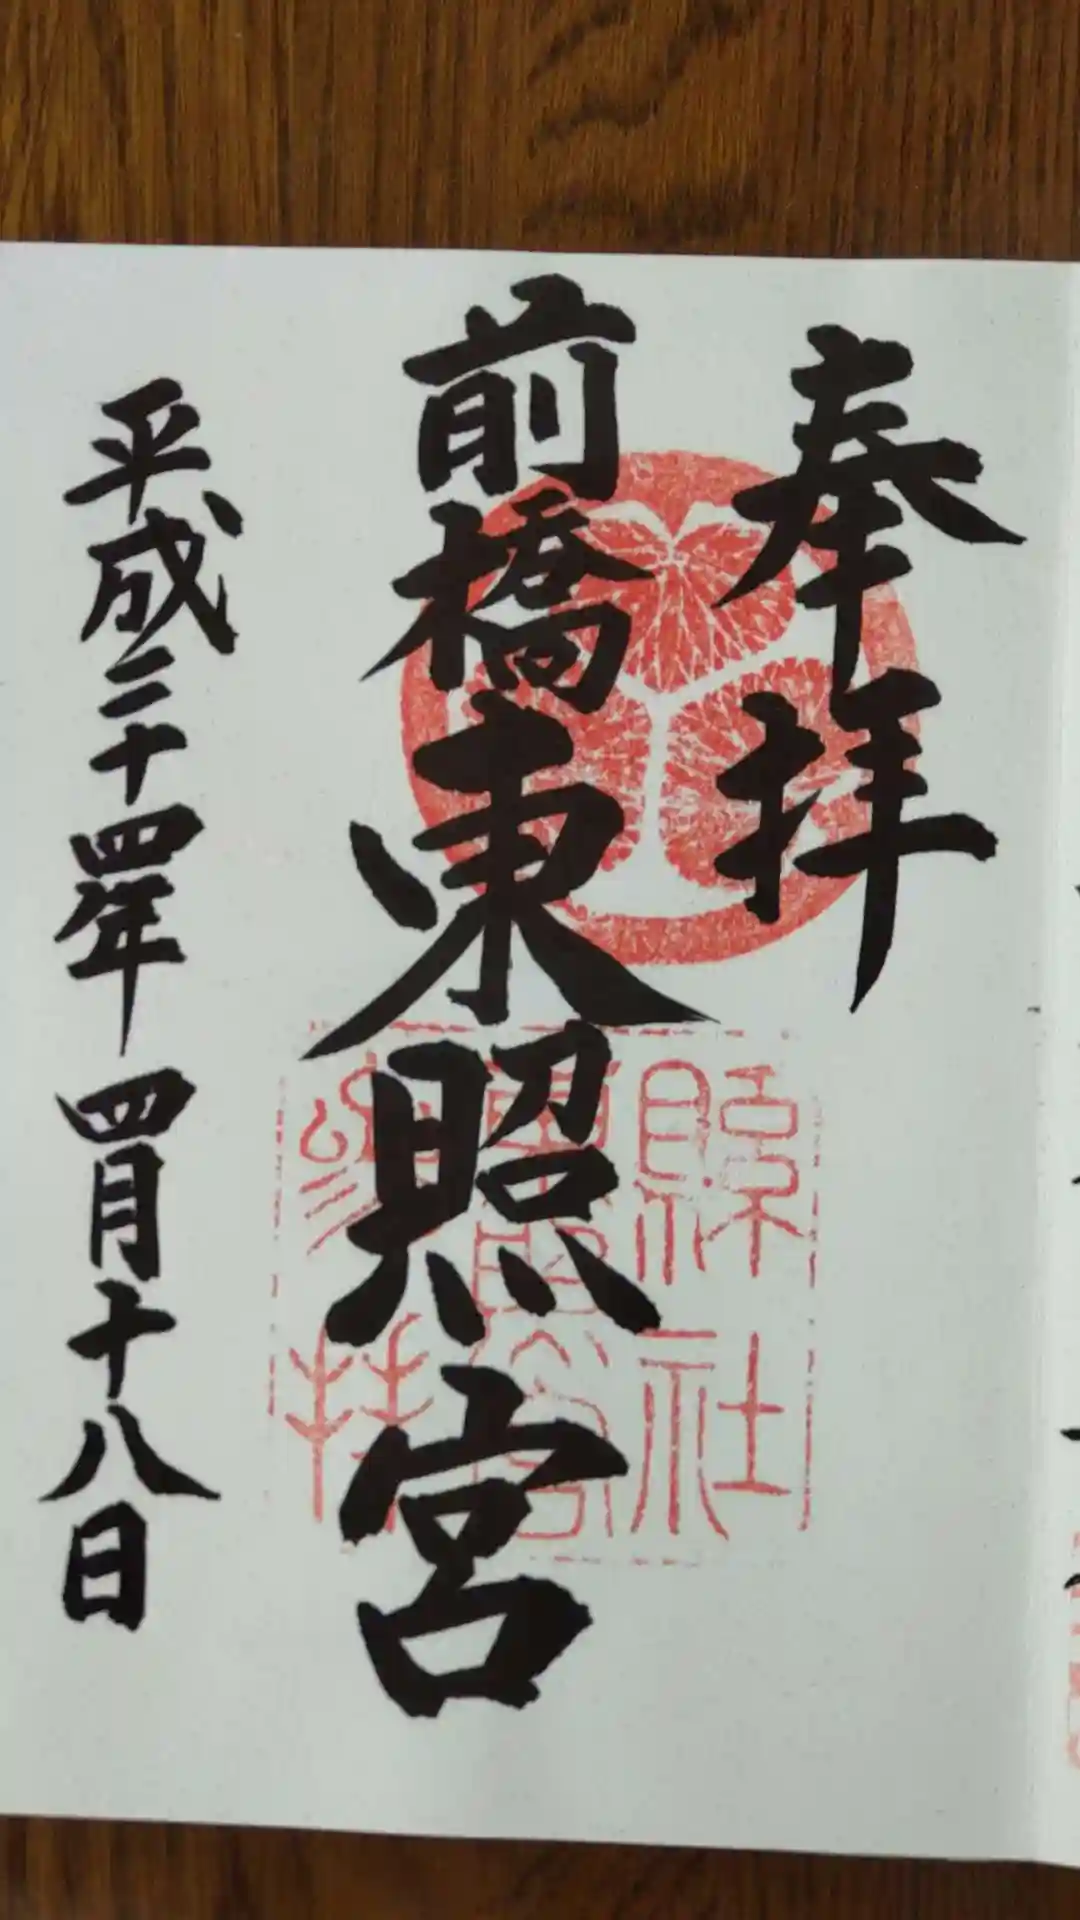 奉拝
前橋東照宮
平成二十四年四月十八日
縣社
東照宮
参拝